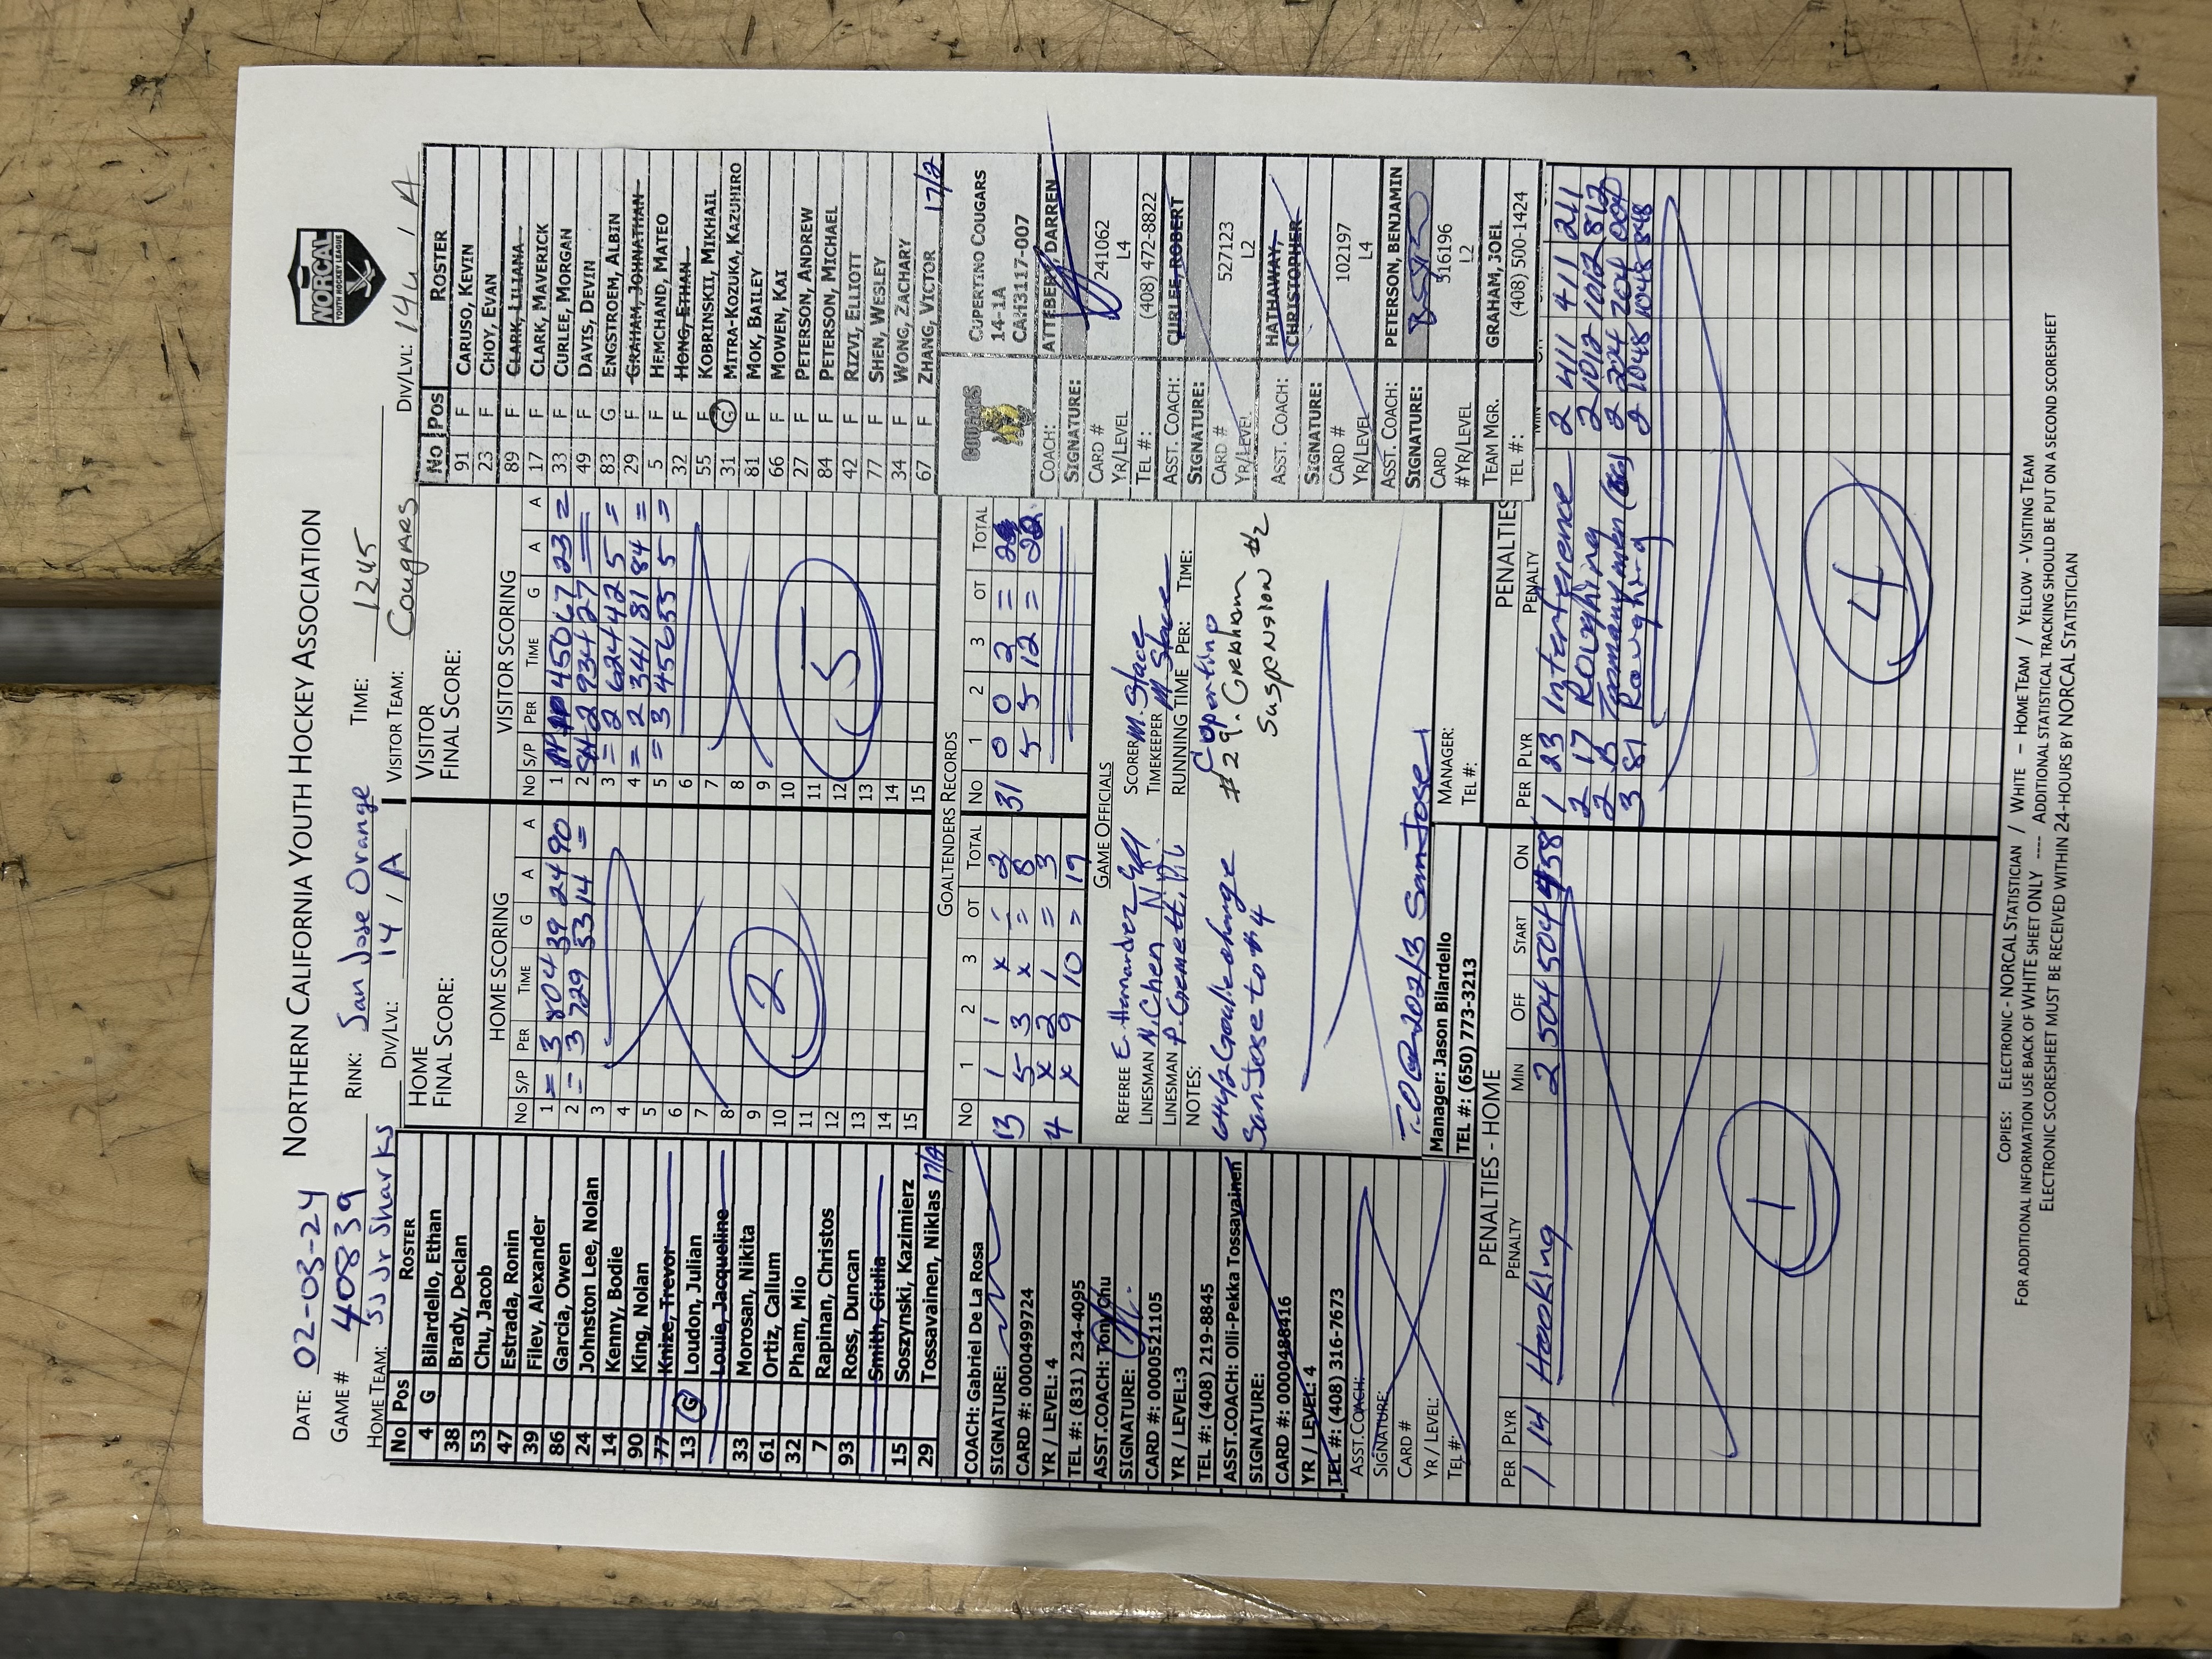 NORTHERN CALIFORNIA YOUTH HOCKEY ASSOCIATION
NORCAL
YOUTH HOCKEY LEAGUE
DATE: 02-03-24
GAME # 40839
RINK: San Jose Orange
TIME: 1245
HOME TEAM: SJ Jr Sharks
DIV/LVL: 14 / A
VISITOR TEAM: Cougars
DIV/LVL: 14u / A
No Pos ROSTER
4 G Bilardello, Ethan
38 Brady, Declan
53 Chu, Jacob
47 Estrada, Ronin
39 Filev, Alexander
86 Garcia, Owen
24 Johnston Lee, Nolan
14 Kenny, Bodie
90 King, Nolan
77 Knize, Trevor
13 G Loudon, Julian
Louie, Jacqueline
33 Morosan, Nikita
61 Ortiz, Callum
32 Pham, Mio
7 Rapinan, Christos
93 Ross, Duncan
Smith, Giulia
15 Soszynski, Kazimierz
29 Tossavainen, Niklas 17/2
COACH: Gabriel De La Rosa
SIGNATURE:
CARD #: 0000499724
YR / LEVEL: 4
TEL #: (831) 234-4095
ASST.COACH: Tony Chu
SIGNATURE:
CARD #: 0000521105
YR / LEVEL:3
TEL #: (408) 219-8845
ASST.COACH: Olli-Pekka Tossavainen
SIGNATURE:
CARD #: 0000488416
YR / LEVEL: 4
TEL #: (408) 316-7673
ASST.COACH:
SIGNATURE:
CARD #
YR / LEVEL:
TEL #:
HOME
FINAL SCORE:
HOME SCORING
No S/P PER TIME G A A
1 = 3 804 39 24 90
2 = 3 729 53 14 =
3
4
5
6
7
8
9
10
11
12
13
14
15
2
VISITOR
FINAL SCORE:
VISITOR SCORING
No S/P PER TIME G A A
1 PP 450 67 23 =
2 SH 2 934 27 =
3 = 2 624 42 5 =
4 = 2 341 81 84 =
5 = 3 456 55 5 =
6
7
8
9
10
11
12
13
14
15
5
No Pos ROSTER
91 F CARUSO, KEVIN
23 F CHOY, EVAN
89 F CLARK, LILIANA
17 F CLARK, MAVERICK
33 F CURLEE, MORGAN
49 F DAVIS, DEVIN
83 G ENGSTROEM, ALBIN
29 F GRAHAM, JOHNATHAN
5 F HEMCHAND, MATEO
32 F HONG, ETHAN
55 F KOBRINSKII, MIKHAIL
31 G MITRA-KOZUKA, KAZUHIRO
81 F MOK, BAILEY
66 F MOWEN, KAI
27 F PETERSON, ANDREW
84 F PETERSON, MICHAEL
42 F RIZVI, ELLIOTT
77 F SHEN, WESLEY
34 F WONG, ZACHARY
67 F ZHANG, VICTOR 17/2
COUGARS
CUPERTINO COUGARS
14-1A
CAH3117-007
COACH: ATTEBERY, DARREN
SIGNATURE:
CARD # 241062
YR/LEVEL L4
TEL #: (408) 472-8822
ASST. COACH: CURLEE, ROBERT
SIGNATURE:
CARD # 527123
YR/LEVEL L2
ASST. COACH: HATHAWAY, CHRISTOPHER
SIGNATURE:
CARD # 102197
YR/LEVEL L4
ASST. COACH: PETERSON, BENJAMIN
SIGNATURE:
CARD 316196
#YR/LEVEL L2
TEAM MGR. GRAHAM, JOEL
TEL #: (408) 500-1424
GOALTENDERS RECORDS
No 1 2 3 OT TOTAL
13 1 1 x - 2
5 3 x = 8
4 x 2 1 = 3
x 9 10 = 19
No 1 2 3 OT TOTAL
31 0 0 2 = 2
5 5 12 = 22
GAME OFFICIALS
REFEREE E. Hernandez
LINESMAN N. Chen
LINESMAN
SCORER M. Stace
TIMEKEEPER M. Stace
RUNNING TIME PER: TIME:
NOTES:
Goalie change
San Jose to #4
Cupertino
#29. Gresham
Suspension #2
T.O. 202/3 San Jose
Manager: Jason Bilardello
TEL #: (650) 773-3213
MANAGER:
TEL #:
PENALTIES - HOME
PER PLYR PENALTY MIN OFF START ON
1 14 Hooking 2 504 504 458
1
PENALTIES
PER PLYR PENALTY MIN
1 23 Interference 2 411 411 211
2 17 Roughing 2 1012 1012 812
2 B Toomanymen 2 204 204 004
3 81 Roughing 2 1048 1048 848
4
COPIES: ELECTRONIC - NORCAL STATISTICIAN / WHITE - HOME TEAM / YELLOW - VISITING TEAM
FOR ADDITIONAL INFORMATION USE BACK OF WHITE SHEET ONLY ---- ADDITIONAL STATISTICAL TRACKING SHOULD BE PUT ON A SECOND SCORESHEET
ELECTRONIC SCORESHEET MUST BE RECEIVED WITHIN 24-HOURS BY NORCAL STATISTICIAN